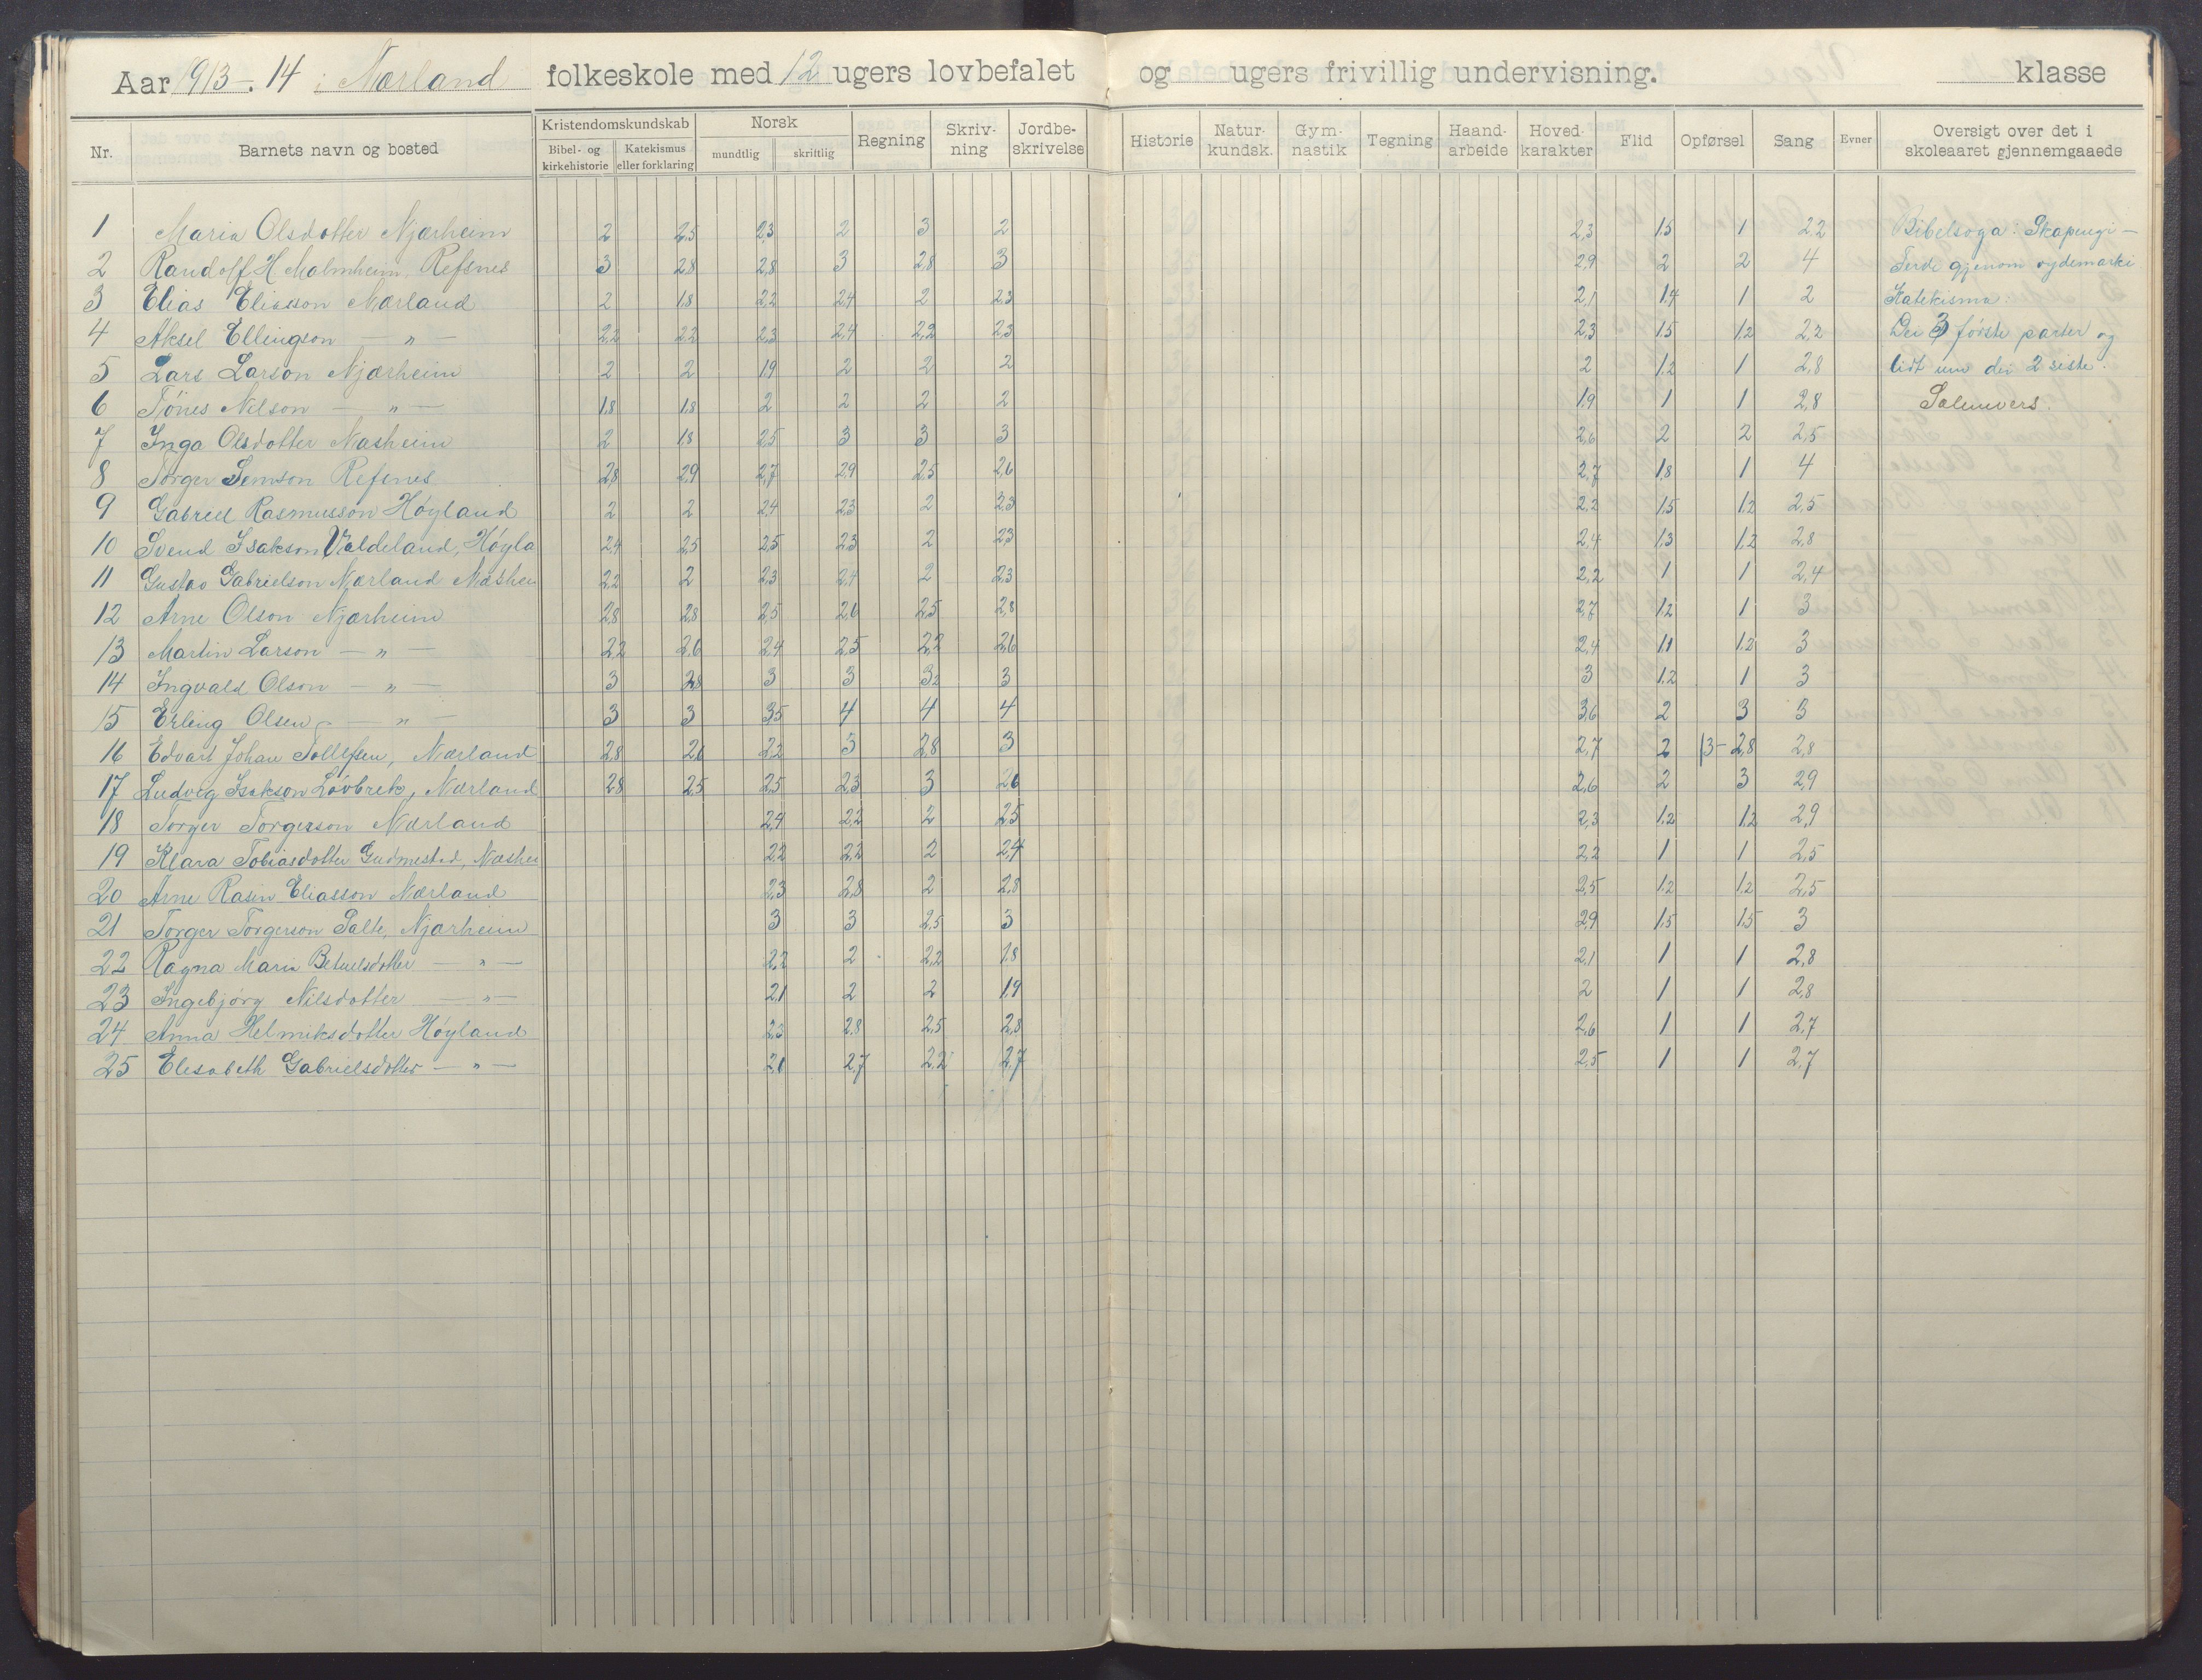 Aar 1913-14 i Nærland folkeskole med 12 ugers lovbefalet og ugers frivillig undervisning. klasse
Nr. Barnets navn og bosted Kristendomskundskab Bibel- og kirkehistorie Katekismus eller forklaring Norsk mundtlig skriftlig Regning Skriv-ning Jordbe-skrivelse Historie Natur-kundsk. Gym-nastik Tegning Haand-arbeide Hoved-karakter Flid Opførsel Sang Evner Oversigt over det i skoleaaret gjennemgaaede
1 Maria Olsdotter Njærheim 2 2,5 2,3 2 3 2 2,3 1,5 1 2,2 Bibelsoga: Skapingi —
2 Randolf H Malmheim, Refsnes 3 2,8 2,8 3 2,8 3 2,9 2 2 4 Ferdi gjenom øydemarki
3 Elias Eliasson Nærland 2 1,8 2,2 2,4 2 2,3 2,1 1,4 1 2 Katekisma:
4 Aksel Ellingson — " — 2,2 2,2 2,3 2,4 2,2 2,3 2,3 1,5 1,2 2,2 Dei 3 første parter og
5 Lars Larson Njærheim 2 2 1,9 2 2 2 2 1,2 1 2,8 lidt um dei 2 siste.
6 Tönes Nilson — " — 1,8 1,8 2 2 2 2 1,9 1 1 2,8 Salmevers.
7 Inga Olsdotter Næsheim 2 1,8 2,5 3 3 3 2,6 2 2 2,5
8 Torger Semson Refsnes 2,8 2,9 2,7 2,9 2,5 2,6 2,7 1,8 1 4
9 Gabriel Rasmusson Høyland 2 2 2,4 2,3 2 2,3 2,2 1,5 1,2 2,5
10 Svend Isakson Valdeland, Høyla 2,4 2,5 2,5 2,3 2 2,3 2,4 1,3 1,2 2,8
11 Gustav Gabrielson Nærland Næshei 2,2 2 2,3 2,4 2 2,3 2,2 1 1 2,4
12 Arne Olson Njærheim 2,8 2,8 2,5 2,6 2,5 2,8 2,7 1,2 1 3
13 Martin Larson — " — 2,2 2,6 2,4 2,5 2,2 2,6 2,4 1,1 1,2 3
14 Ingvald Olson — " — 3 2,8 3 3 3,2 3 3 1,2 1 3
15 Erling Olsen — " — 3 3 3,5 4 4 4 3,6 2 3 3
16 Edvart Johan Tollefsen, Nærland 2,8 2,6 2,2 3 2,8 3 2,7 2 3- 2,8 2,8
17 Ludvig Isakson Lövbrek, Nærland 2,8 2,5 2,5 2,3 3 2,6 2,6 2 3 2,9
18 Torger Torgerson Nærland 2,4 2,2 2 2,5 2,3 1,2 1,2 2,9
19 Klara Tobiasdotter Gudmestad, Næshei 2,2 2,2 2 2,4 2,2 1 1 2,5
20 Arne Rasin Eliasson Nærland 2,3 2,8 2 2,8 2,5 1,2 1,2 2,5
21 Torger Torgerson Salte, Njærheim 3 3 2,5 3 2,9 1,5 1,5 3
22 Ragna Maria Betuelsdotter — " — 2,2 2 2,2 1,8 2,1 1 1 2,8
23 Ingebjörg Nilsdotter — " — 2,1 2 2 1,9 2 1 1 2,8
24 Anna Helmiksdotter Høyland 2,3 2,8 2,5 2,8 2,6 1 1 2,7
25 Elisabeth Gabrielsdotter — " — 2,1 2,7 2,2 2,7 2,5 1 1 2,7